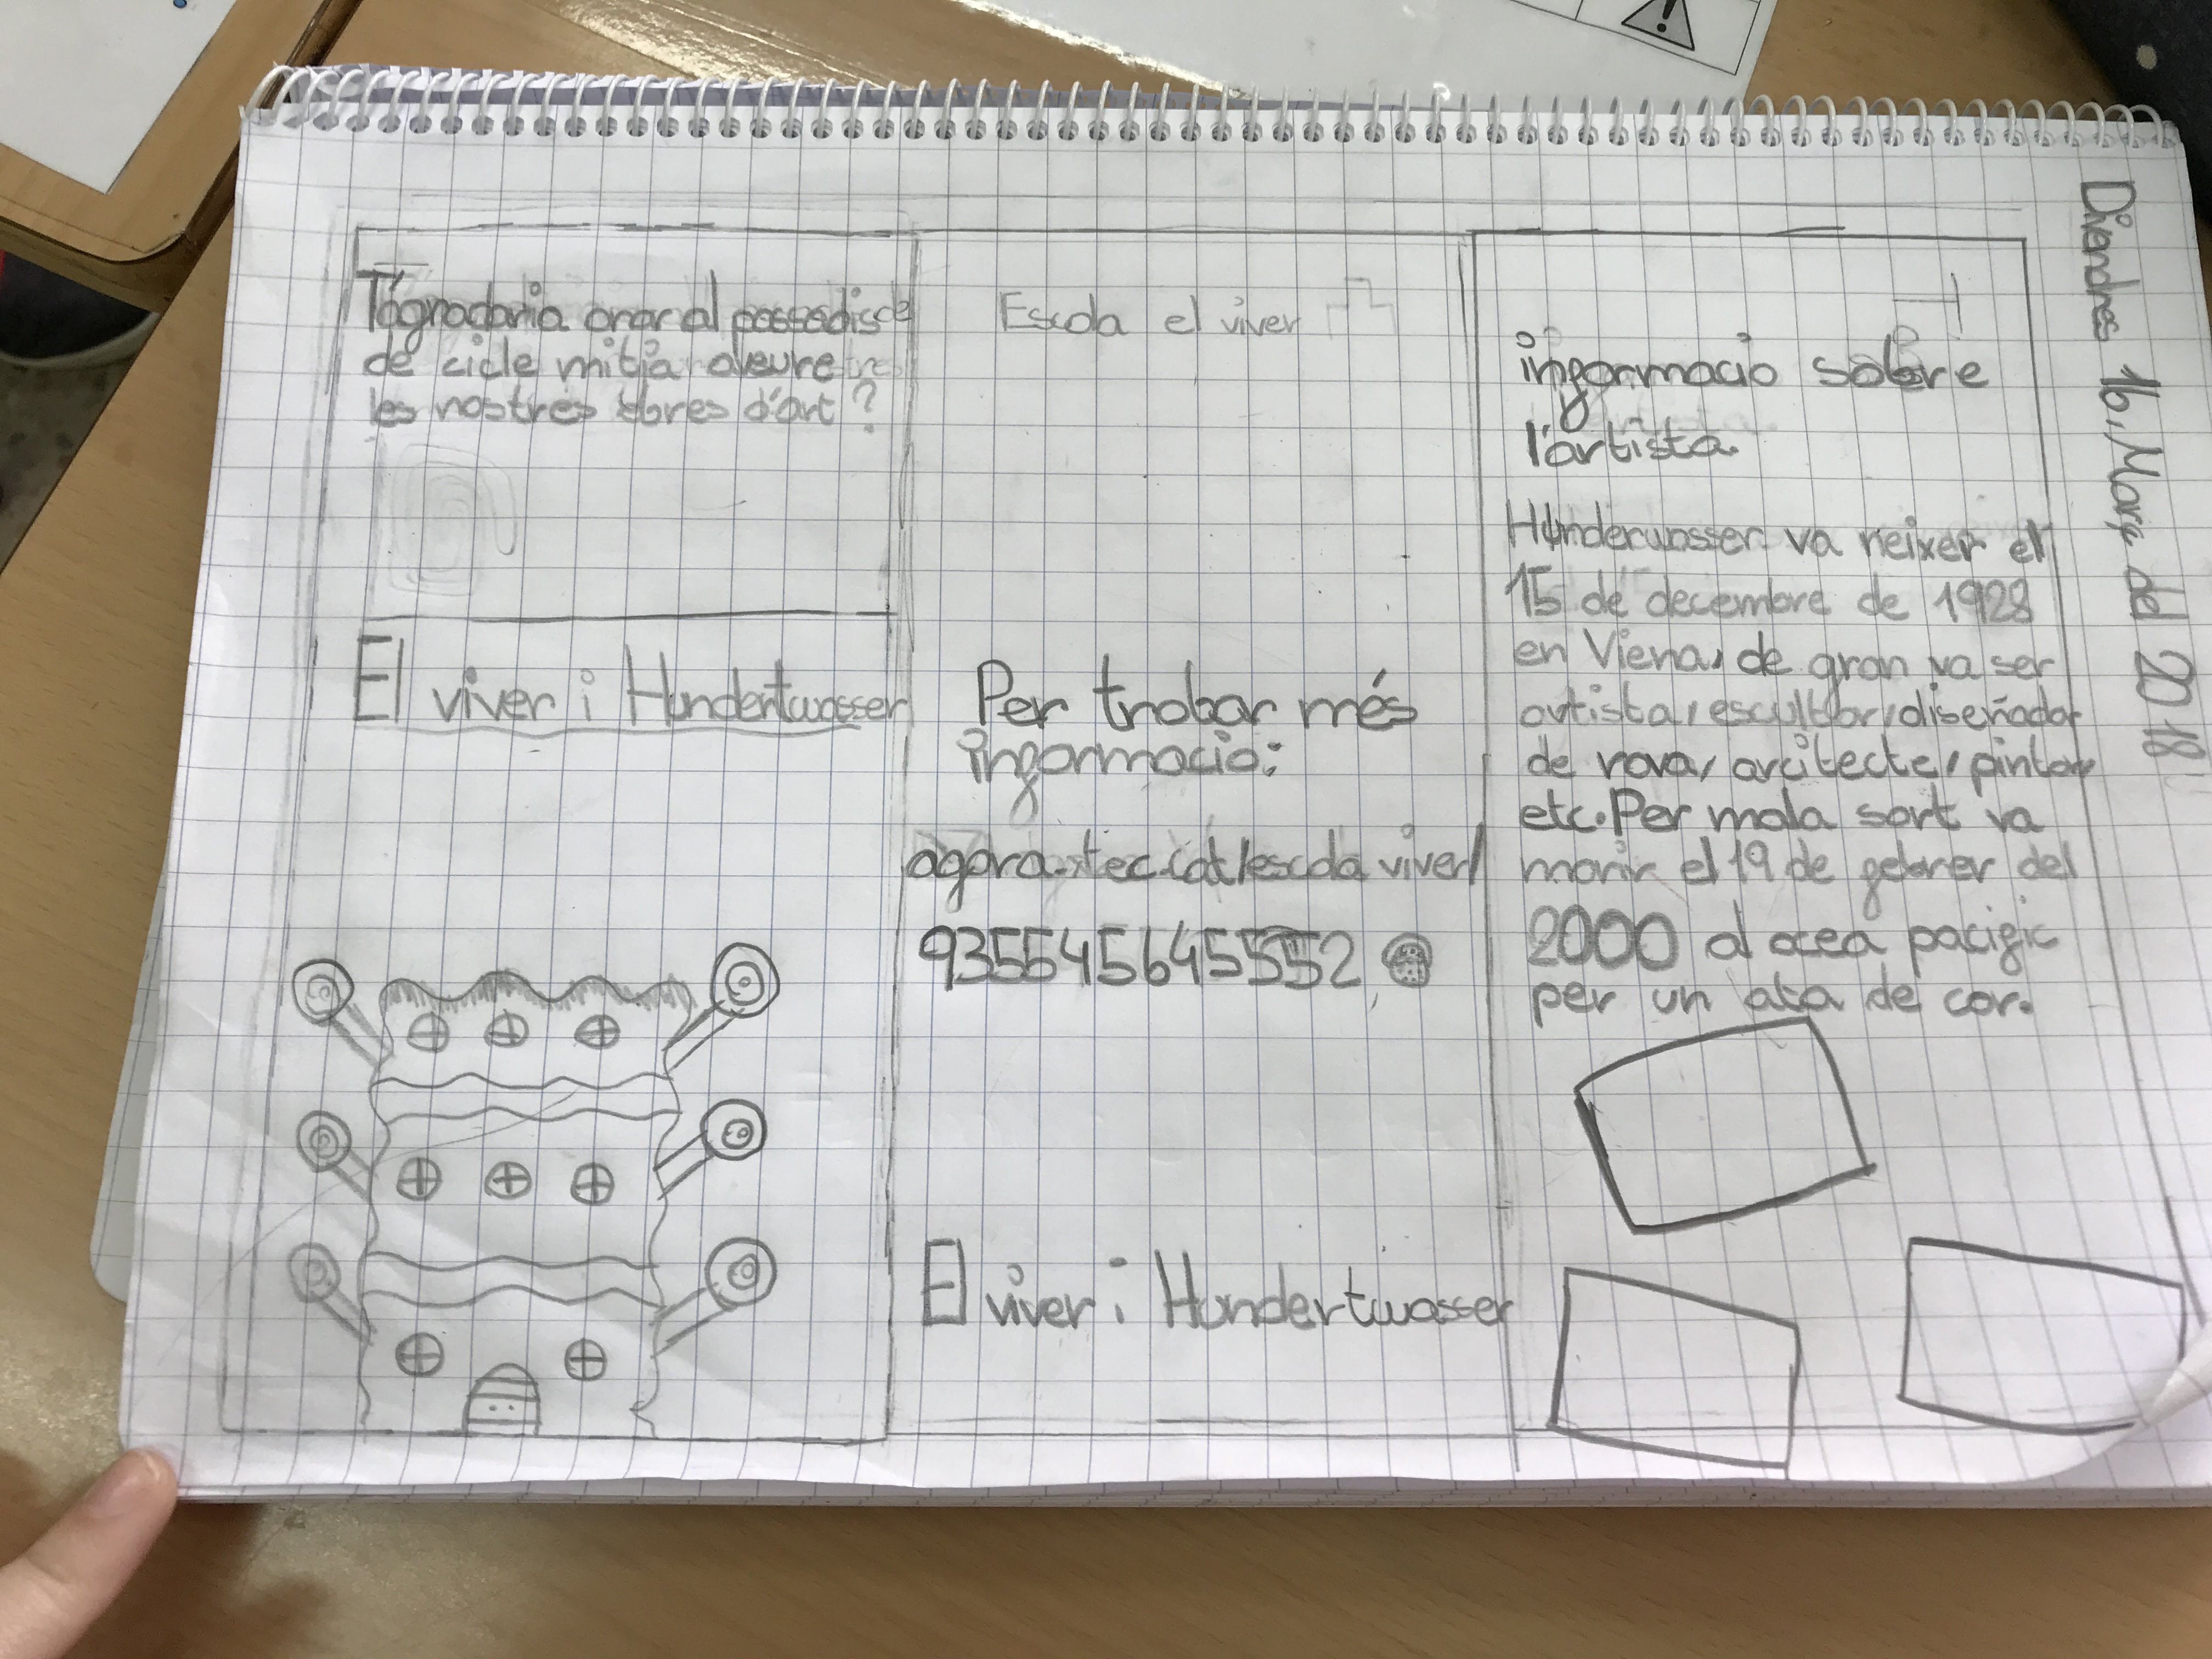 T'agradaria anar al passadis de
de cicle mitjà aveure
les nostres obres d'art?
El viver i Hundertwasser
Escola el viver
Per trobar més
informacio:
agora.xtec.cat/escola viver/
9355456455552
El viver i Hundertwasser
informacio sobre
l'artista.
Hunderwasser va neixer el
15 de decembre de 1928
en Viena, de gran va ser
artista, escultor, diseñador
de rova, arcitecte, pintor,
etc. Per mala sort va
morir el 19 de febrer del
2000 al ocea pacific
per un ata de cor.
Divendres 16, Març del 2018